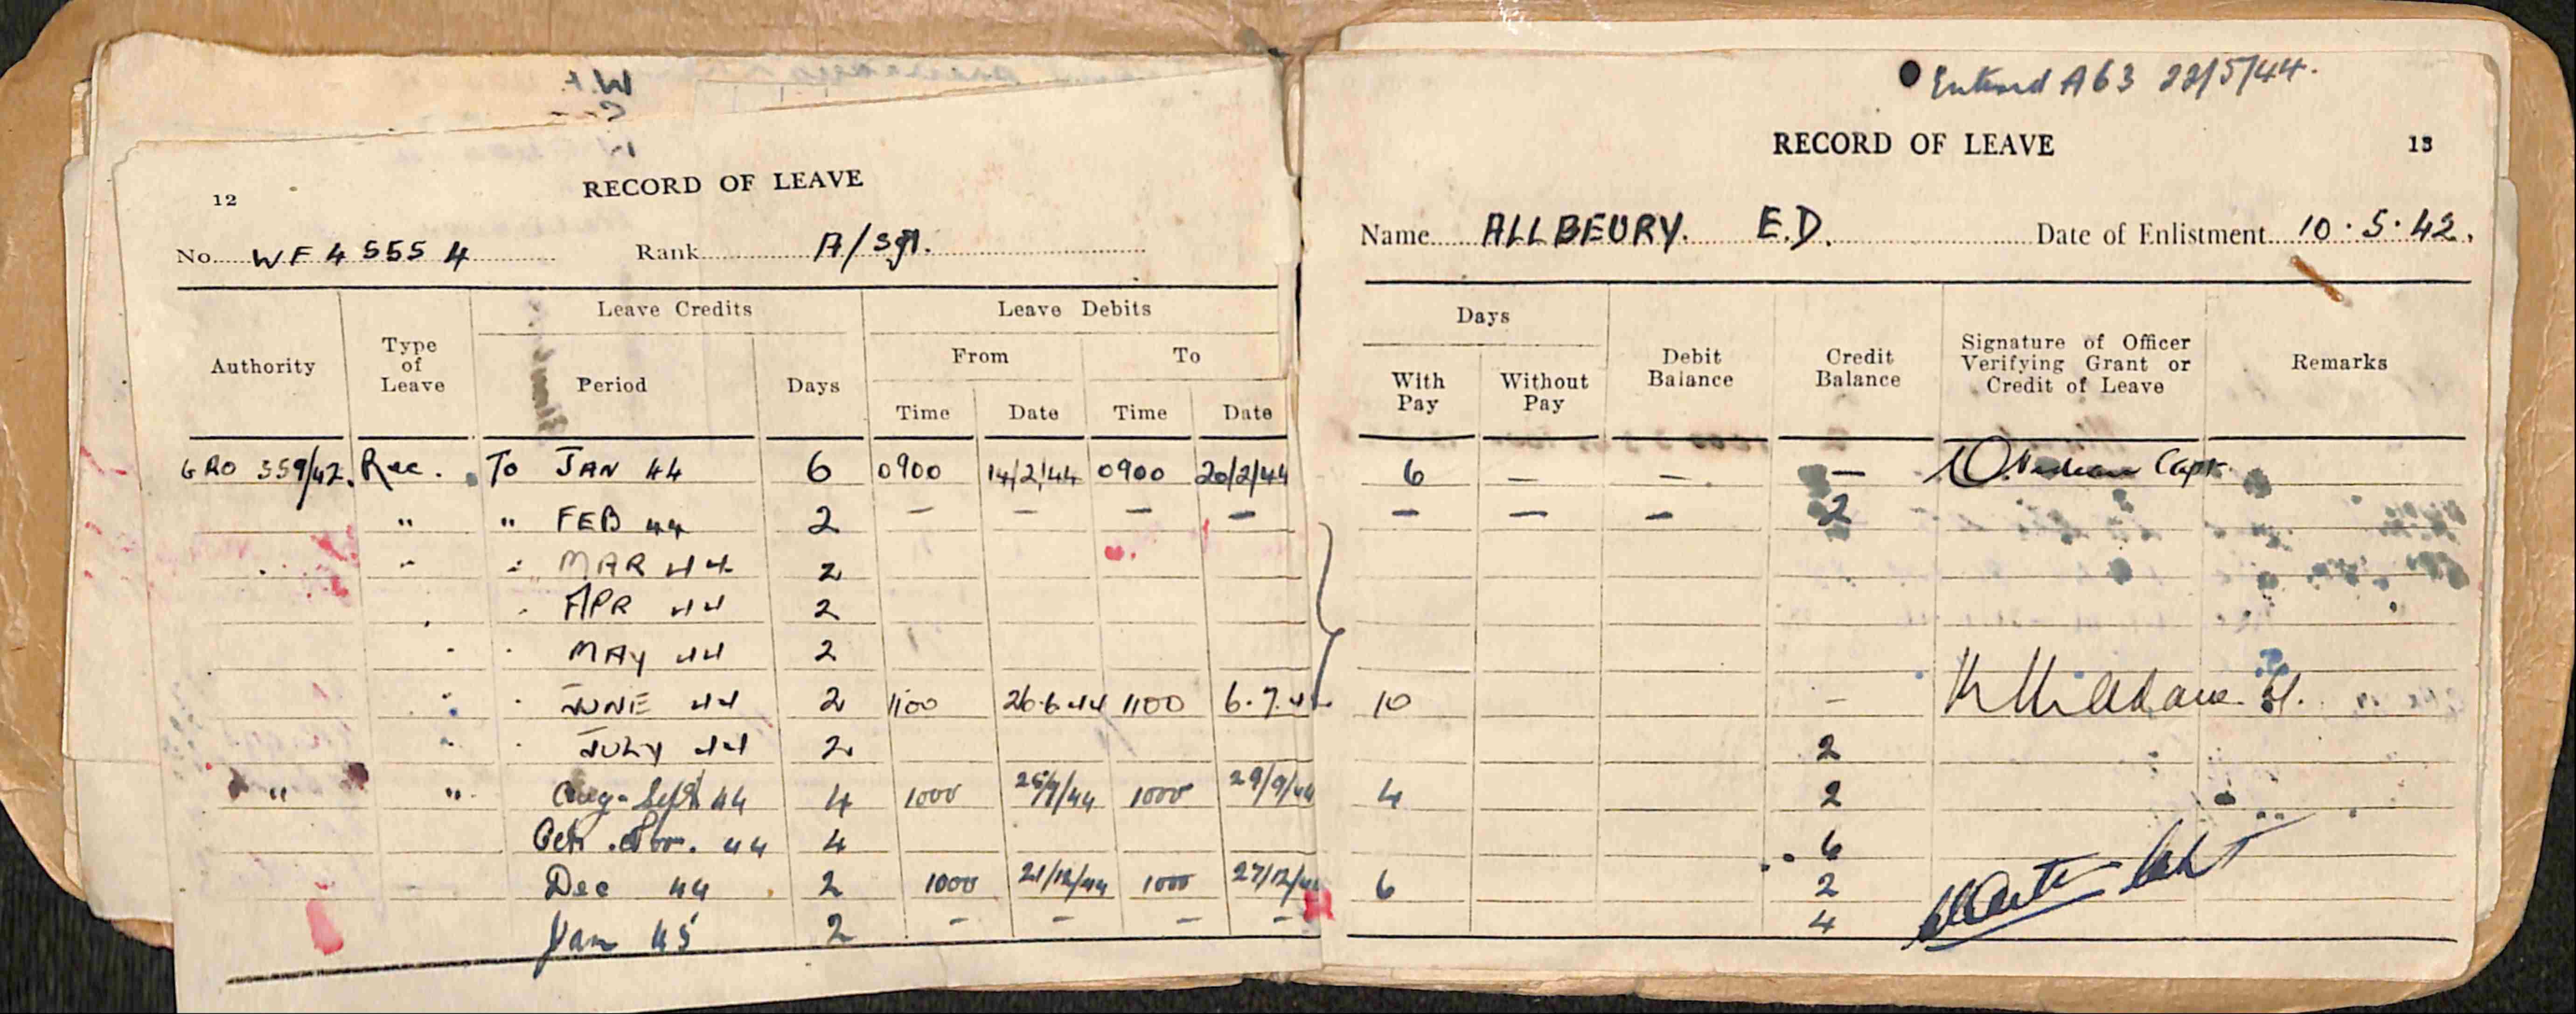 12
RECORD OF LEAVE
No. WF 45554 Rank A/Sgt.
Authority Type of Leave Leave Credits Leave Debits
Period Days From To
Time Date Time Date
GRO 359/42. Rec. To JAN 44 6 0900 14/2/44 0900 20/2/44
" " FEB 44 2 – – – –
MAR 44 2
APR 44 2
MAY 44 2
JUNE 44 2 1100 26.6.44 1100 6.7.44
JULY 44 2
" " Aug - Sept 44 4 1000 25/9/44 1000 29/9/44
Oct. Nov. 44 4
Dec 44 2 1000 21/12/44 1000 27/12/44
Jan 45 2 – – – –
Entered A63 22/5/44.
RECORD OF LEAVE 13
Name ALLBEURY. E.D. Date of Enlistment 10.5.42.
Days Debit Balance Credit Balance Signature of Officer Verifying Grant or Credit of Leave Remarks
With Pay Without Pay
6 – – – Capt.
– – – 2
10 –
2
4 2
6
6 2
4